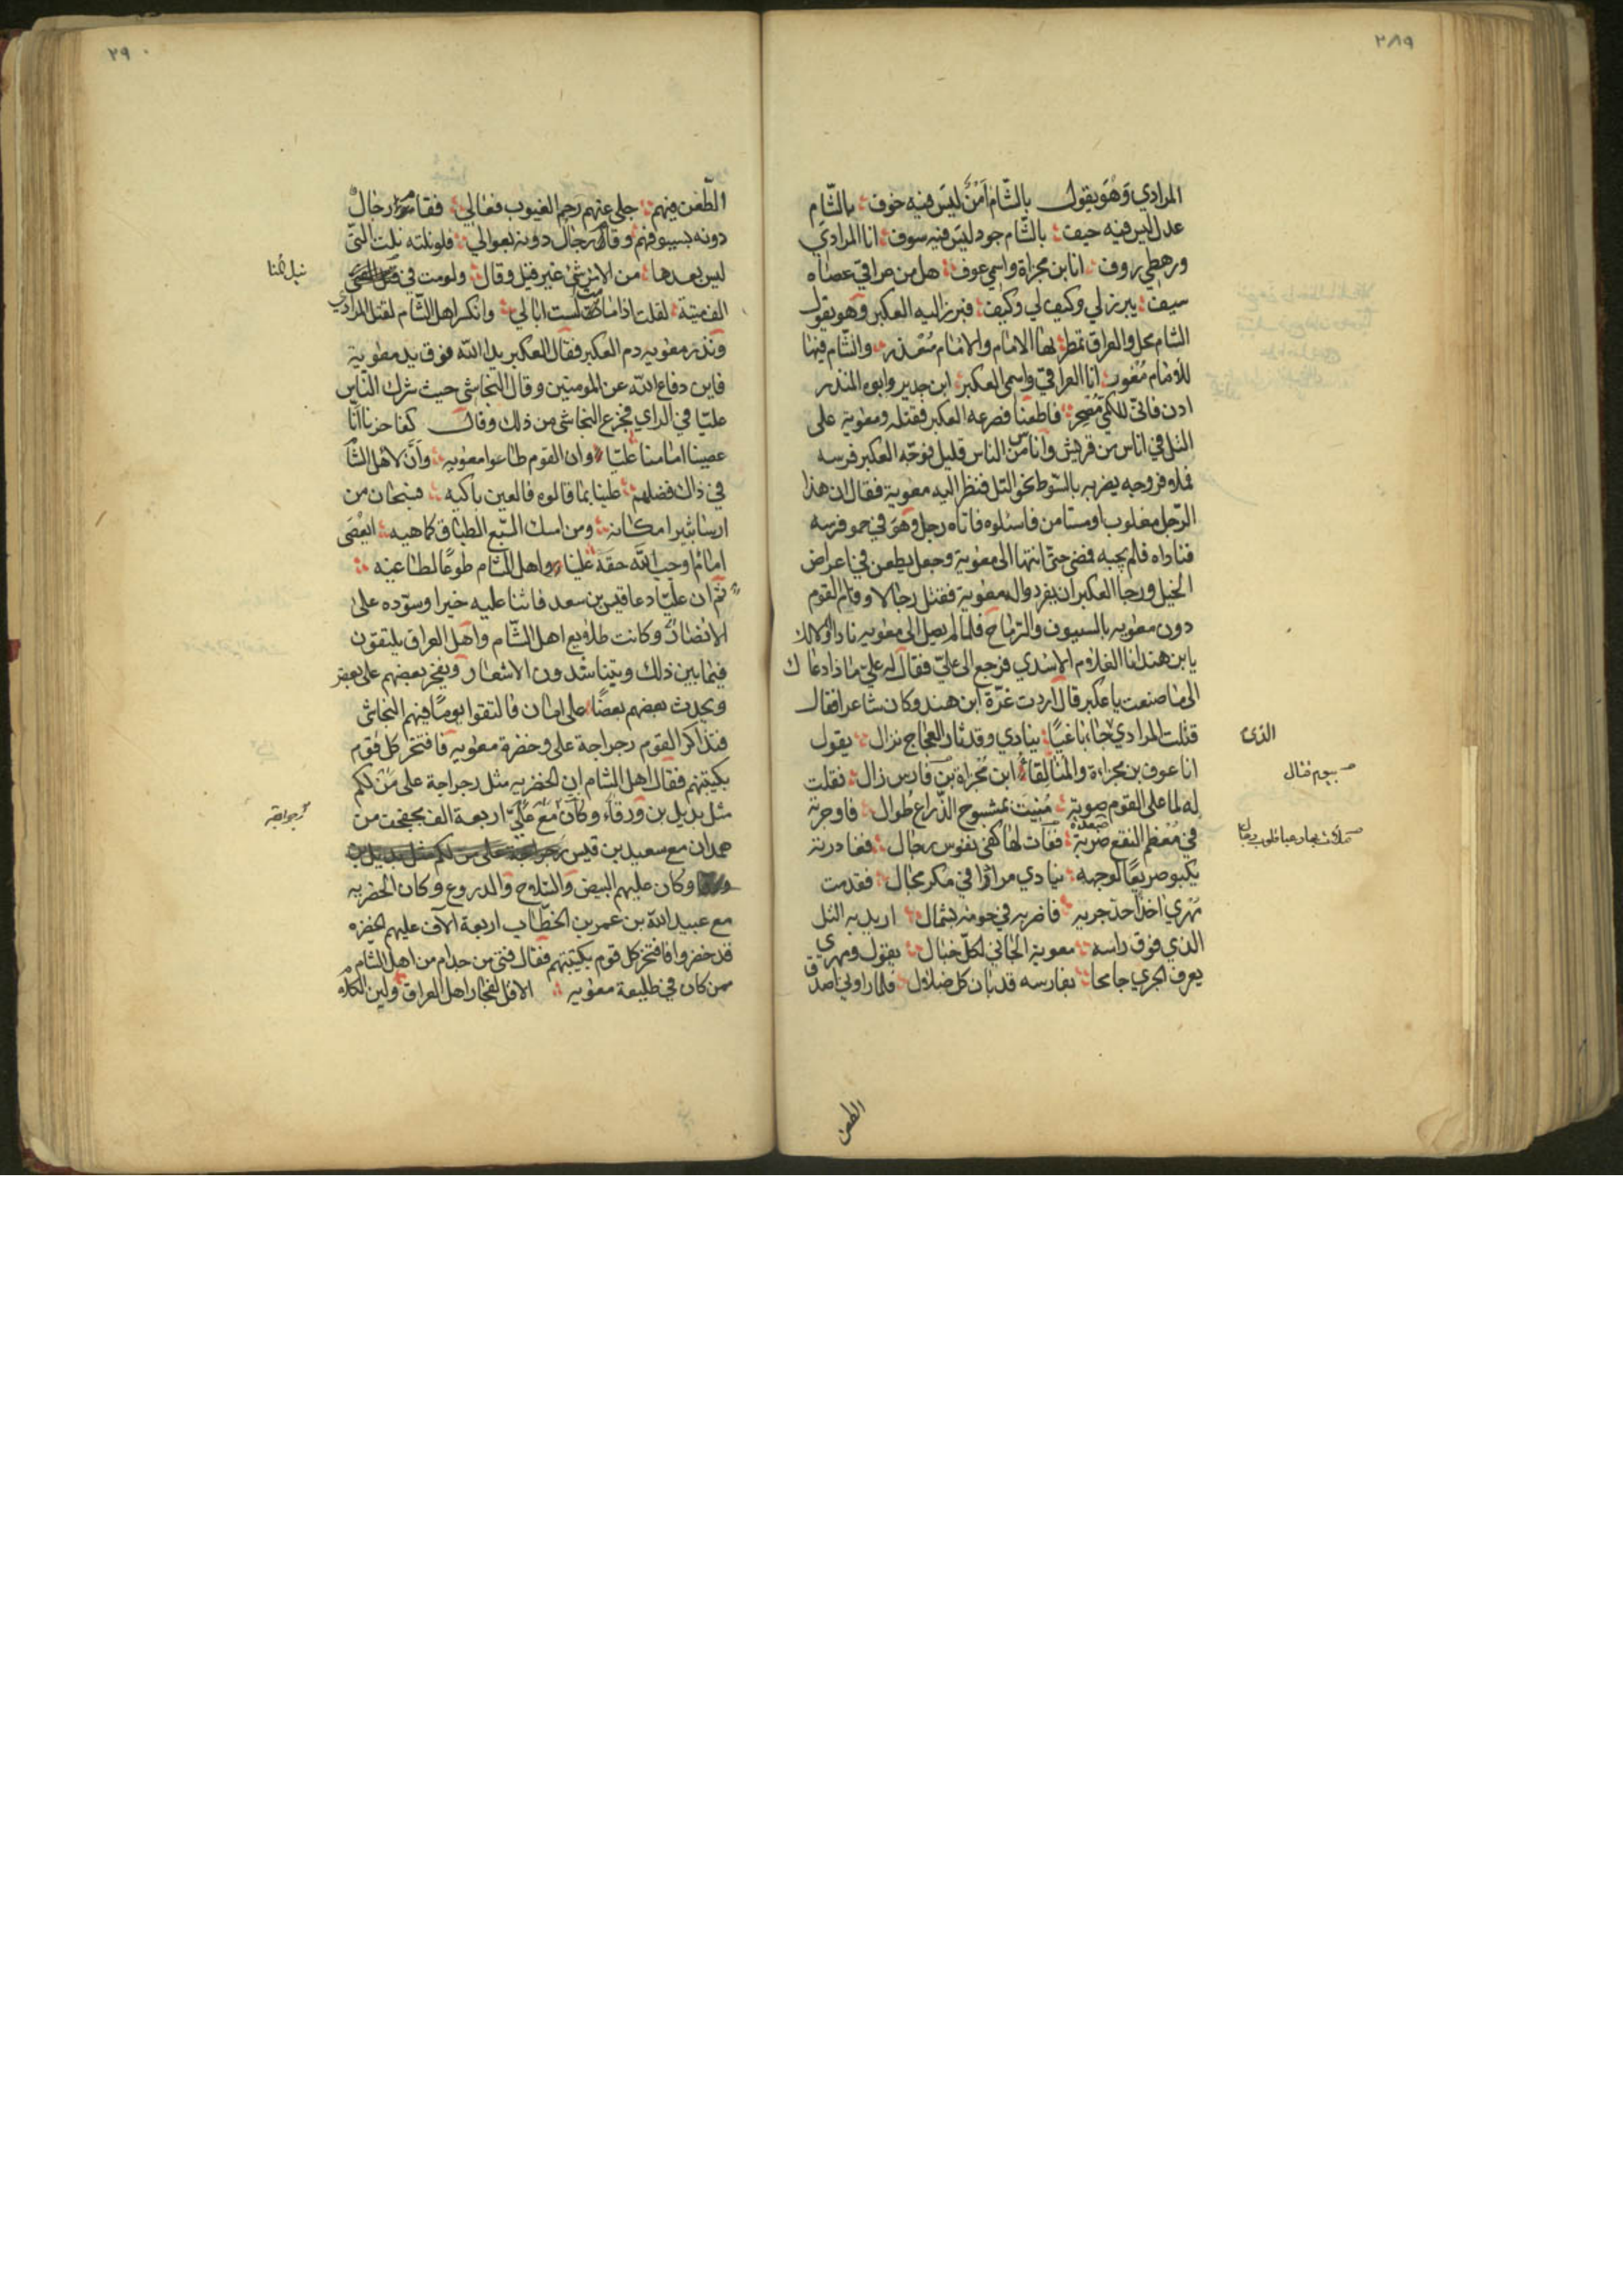 ٢٨٩
المرادي وَهُوَ يقول بالشّام اَمْنٌ ليسَ فيه خوف بالشّام
عدل ليس فيه حيف بالشّام جود ليسَ فيه سوف انا المرادي
ورهطي زوف انا بن مجزاة واسمي عوف هل من عراقي عصاه
سيف يبرز لي وكيف لي وكيف فبرز اليه العكبر وَهو يقول
الشام محل والعراق تمطر لها الامام والامام مُعْذر والشام فيها
للامام مُعْور انا العراقي واسمي العكبر ابن جدير وابوه المنذر
ادن فانّي للكمي مُصْحر فاطعنا فصرعه العكبر فقتله ومعوية على
التل في اناس من قريش واناس من الناس قليل فوجّه العكبر فرسه
فملا فروجه يضربه بالسّوط نحو التل فنظر اليه معوية فقال ان هذا
الرّجل مغلوب او مستامن فاسئلوه فاتاه رجل وَهو في حمو فرسه
فناداه فلم يجبه فمضى حتى انتها الى معوية وجعل يطعن في اعراض
الخيل ورجا العكبر ان يفردوا له معوية فقتل رجالا وقام القوم
دون معويه بالسيوف والرّماح فلما لم يصل الى معويه نادا اولالك
يابن هند انا الغلام الاسدي فرجع الى عليّ فقال له عليّ ماذا دعاك
الى ما صنعت يا عكبر قال اردت غرّة ابن هند وكان شاعرا فقال
قتلت المرادي جاء باغيًا ينادي وقد ثار العجاج نزال يقول
الذى
انا عوف بن مجزاءة والمنا لِقاء ابن مُجزاة بن فارس زال فقلت
بيوم قتال
له لما على القوم صوته مُنيتَ بمشبوح الذّراع طُوال فاوجرته
في مُعْظم النقع صَرْبة صعدة فقات لها كفي نفوس رجال فغادرته
يكبو صريعًا لوجهه ينادي مرارًا في مكر مجال فقدمت
مُهري اخذا حد جريه فاضربه في حومة بشمال اريد به التل
الذي فوق راسه معوية الجاني لكلّ خبال يقول ومهري
يعرف الجري جامحا بفارسه قد بان كل ضلال فلما راوني اصدق
الطعن
٢٩٠
الطّعن فيهم جلى عنهم رجم الغيوب فعالي فقام رجالٌ
دونه بسيوفهم وقال رجالٌ دونه بعوالي فلو نلته نلت التي
ليس بعدها من الامر شئ غير قيل وقال ولو مت في
نيل المنا
الف ميتة لقلت اذا ما مت لست ابالي وانكسر اهل الشام لقتل المرادي
ونذر معويه دم العكبر فقال العكبر يد الله فوق يد معوية
فاين دفاع الله عن المومنين وقال النجاشي حيث شرك الناس
عليّا في الراي فجزع النجاشي من ذلك وقال كفا حزنا انّا
عصينا امامنا عليّا وان القوم طاعوا معويه وانّ لاهل الشا
في ذاك فضلهم علينا بما قالوه فالعين باكيه فسبحان من
ارسا ثبيرا مكانه ومن امسك السّبع الطباق كما هيه ايعْصَى
امامٌ اوجب الله حقّه علينا واهل الشام طوعًا لطاغيه
ثم ان عليّا دعا قيس بن سعد فاثنا عليه خيرا وسوّده على
الانصار وكانت طلايع اهل الشّام واهل العراق يلتقون
فيما بين ذلك ويتناشدون الاشعار ويفخر بعضهم على بعض
ويحدث بعضهم بعضًا على امان فالتقوا يومًا فيهم النجاشي
فتذاكر القوم رجراجة علي وخضرة معويه فافتخر كل قوم
بكتيبتهم فقال اهل الشام ان الخضريه مثل رجراجة على من لكم
مثل بديل بن ورقاء وكان مع عليّ اربعة الف مجفجف من
رجراجة
همدان مع سعيد بن قيس رجراجة على من لكم مثل بديل بن
وكان عليهم البيض والسّلاح والدروع وكان الخضريه
مع عبيد الله بن عمر بن الخطّاب اربعة الآف عليهم الخضره
قد حضروا فافتخر كل قوم بكتيبتهم فقال فتى من جدام من اهل الشام
ممن كان في طليعة معويه الا قل لفجار اهل العراق ولين الكلام